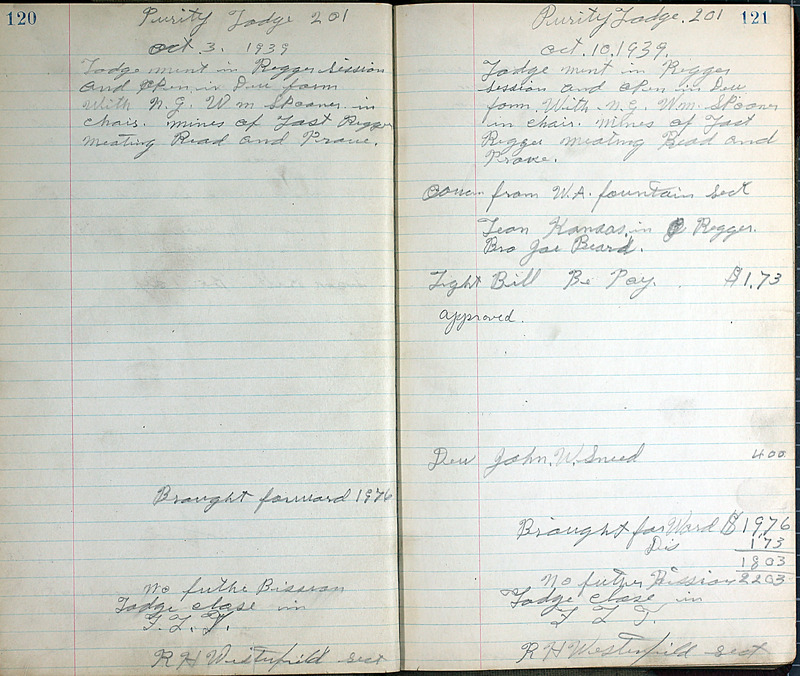 120
Purity Lodge 201
oct. 3. 1939
Lodge ment in Regger session
and open in Deu form
with N.G. Wm Spooner in
chair. mines of Last Regger
meating Read and Prove.
Brought forward 1976
No futhe Bission
Lodge close in
F. L. T.
R H Westerfield sect
Purity Lodge. 201 121
oct. 10. 1939.
Lodge ment in Regger
session and open in Deu
form. With N.G. Wm. Spooner
in chair. mines of Last
Regger meating Read and
Prove.
from W.A. fountain Sect
Kansas, in Regger.
Bro Joe Beard.
Light Bill Be Pay. $1.73
approved.
Deu John. W. Sneed 400
Brought for Ward $1976
Dis 1.73
1803
No futher Bission 2203
Lodge close in
F L T.
R H Westerfield sect